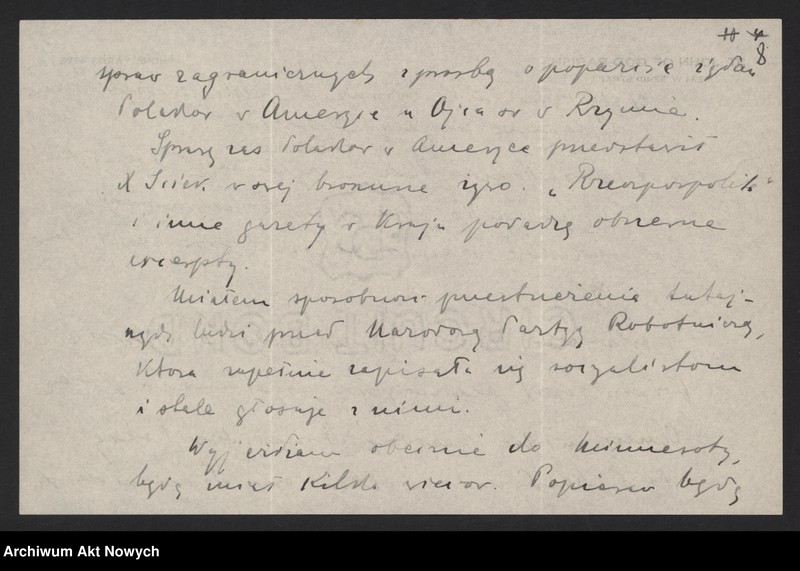 8
spraw zagranicznych z prośbą o poparcie żądań
Polaków w Ameryce u Ojca św w Rzymie.
Sprawę zaś Polaków w Ameryce przedstawił
X w swej broszurze . „Rzeczpospolita"
i inne gazety w Kraju podadzą obszerne
wycierpty.
Miałem sposobność przestrzeżenia tutej-
szych ludzi przed Narodową Partyą Robotniczą,
która zupełnie zapisała się socyalistom
i stale głosuje z nimi.
Wyjeżdżam obecnie do Minnesoty,
będę miał kilka wieców. Popieraw będą
Archiwum Akt Nowych